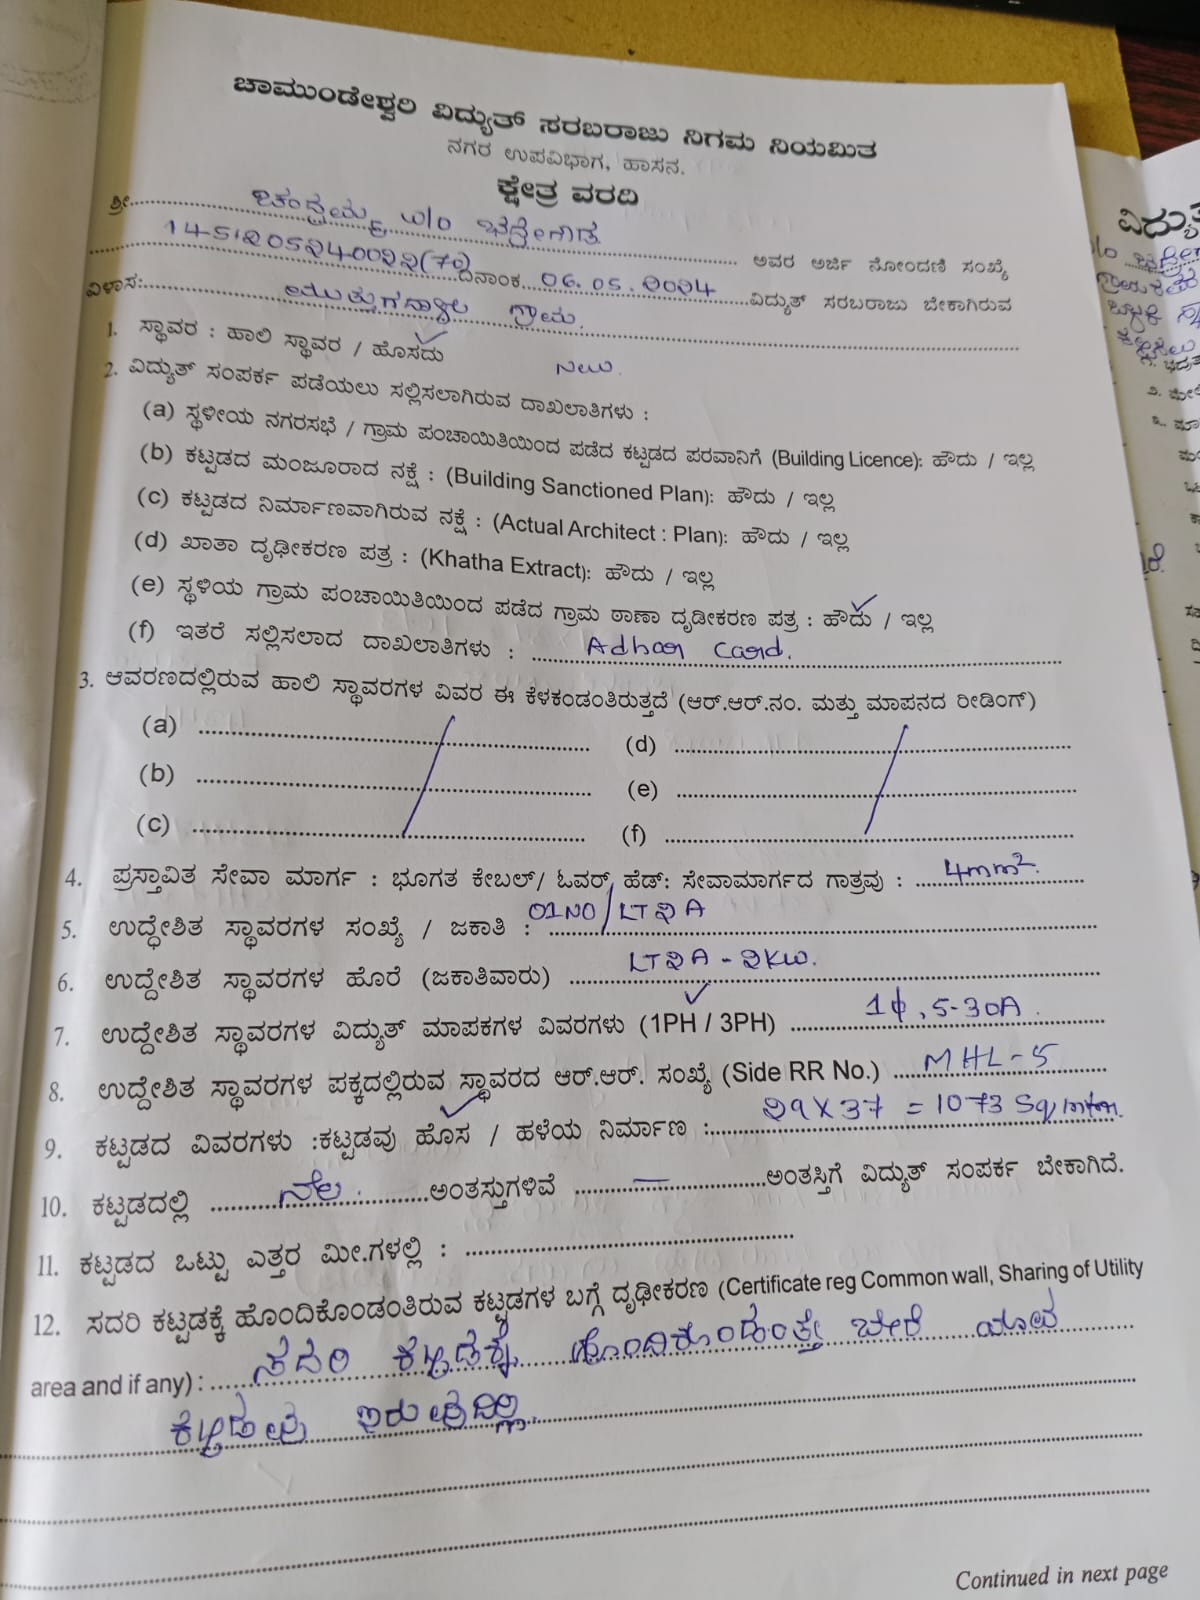 ಚಾಮುಂಡೇಶ್ವರಿ ವಿದ್ಯುತ್ ಸರಬರಾಜು ನಿಗಮ ನಿಯಮಿತ
ನಗರ ಉಪವಿಭಾಗ, ಹಾಸನ.
ಕ್ಷೇತ್ರ ವರದಿ
ಶ್ರೀ. ಚಂದ್ರಮ್ಮ W/O
ಅವರ ಅರ್ಜಿ ನೋಂದಣಿ ಸಂಖ್ಯೆ
ದಿನಾಂಕ 06.05.2024 ವಿದ್ಯುತ್ ಸರಬರಾಜು ಬೇಕಾಗಿರುವ
ವಿಳಾಸ: ಗ್ರಾಮ.
1. ಸ್ಥಾವರ : ಹಾಲಿ ಸ್ಥಾವರ / ಹೊಸದು
2. ವಿದ್ಯುತ್ ಸಂಪರ್ಕ ಪಡೆಯಲು ಸಲ್ಲಿಸಲಾಗಿರುವ ದಾಖಲಾತಿಗಳು :
(a) ಸ್ಥಳೀಯ ನಗರಸಭೆ / ಗ್ರಾಮ ಪಂಚಾಯಿತಿಯಿಂದ ಪಡೆದ ಕಟ್ಟಡದ ಪರವಾನಿಗೆ (Building Licence): ಹೌದು / ಇಲ್ಲ
(b) ಕಟ್ಟಡದ ಮಂಜೂರಾದ ನಕ್ಷೆ : (Building Sanctioned Plan): ಹೌದು / ಇಲ್ಲ
(c) ಕಟ್ಟಡದ ನಿರ್ಮಾಣವಾಗಿರುವ ನಕ್ಷೆ : (Actual Architect : Plan): ಹೌದು / ಇಲ್ಲ
(d) ಖಾತಾ ದೃಢೀಕರಣ ಪತ್ರ : (Khatha Extract): ಹೌದು / ಇಲ್ಲ
(e) ಸ್ಥಳಿಯ ಗ್ರಾಮ ಪಂಚಾಯಿತಿಯಿಂದ ಪಡೆದ ಗ್ರಾಮ ಠಾಣಾ ದೃಡೀಕರಣ ಪತ್ರ : ಹೌದು / ಇಲ್ಲ
(f) ಇತರೆ ಸಲ್ಲಿಸಲಾದ ದಾಖಲಾತಿಗಳು : Adhar Card.
3. ಆವರಣದಲ್ಲಿರುವ ಹಾಲಿ ಸ್ಥಾವರಗಳ ವಿವರ ಈ ಕೆಳಕಂಡಂತಿರುತ್ತದೆ (ಆರ್.ಆರ್.ನಂ. ಮತ್ತು ಮಾಪನದ ರೀಡಿಂಗ್)
(a) (d)
(b) (e)
(c) (f)
4. ಪ್ರಸ್ತಾವಿತ ಸೇವಾ ಮಾರ್ಗ : ಭೂಗತ ಕೇಬಲ್/ ಓವರ್ ಹೆಡ್: ಸೇವಾಮಾರ್ಗದ ಗಾತ್ರವು : 4mm²
5. ಉದ್ಧೇಶಿತ ಸ್ಥಾವರಗಳ ಸಂಖ್ಯೆ / ಜಕಾತಿ : 01NO/LT2A
6. ಉದ್ದೇಶಿತ ಸ್ಥಾವರಗಳ ಹೊರೆ (ಜಕಾತಿವಾರು) LT2A - 2KW.
7. ಉದ್ದೇಶಿತ ಸ್ಥಾವರಗಳ ವಿದ್ಯುತ್ ಮಾಪಕಗಳ ವಿವರಗಳು (1PH / 3PH) 1ϕ, 5-30A.
8. ಉದ್ದೇಶಿತ ಸ್ಥಾವರಗಳ ಪಕ್ಕದಲ್ಲಿರುವ ಸ್ಥಾವರದ ಆರ್.ಆರ್. ಸಂಖ್ಯೆ (Side RR No.) MHL-5
9. ಕಟ್ಟಡದ ವಿವರಗಳು :ಕಟ್ಟಡವು ಹೊಸ / ಹಳೆಯ ನಿರ್ಮಾಣ : 29 X 37 = 1073 Sq
10. ಕಟ್ಟಡದಲ್ಲಿ ನೆಲ ಅಂತಸ್ತುಗಳಿವೆ — ಅಂತಸ್ತಿಗೆ ವಿದ್ಯುತ್ ಸಂಪರ್ಕ ಬೇಕಾಗಿದೆ.
11. ಕಟ್ಟಡದ ಒಟ್ಟು ಎತ್ತರ ಮೀ.ಗಳಲ್ಲಿ :
12. ಸದರಿ ಕಟ್ಟಡಕ್ಕೆ ಹೊಂದಿಕೊಂಡಂತಿರುವ ಕಟ್ಟಡಗಳ ಬಗ್ಗೆ ದೃಢೀಕರಣ (Certificate reg Common wall, Sharing of Utility
area and if any) : ಸದರಿ ಕಟ್ಟಡಕ್ಕೆ ಹೊಂದಿಕೊಂಡಂತ್ತೇ ಬೇರೆ ಯಾವ
ಕಟ್ಟಡವು ಇರುವುದಿಲ್ಲ.
Continued in next page